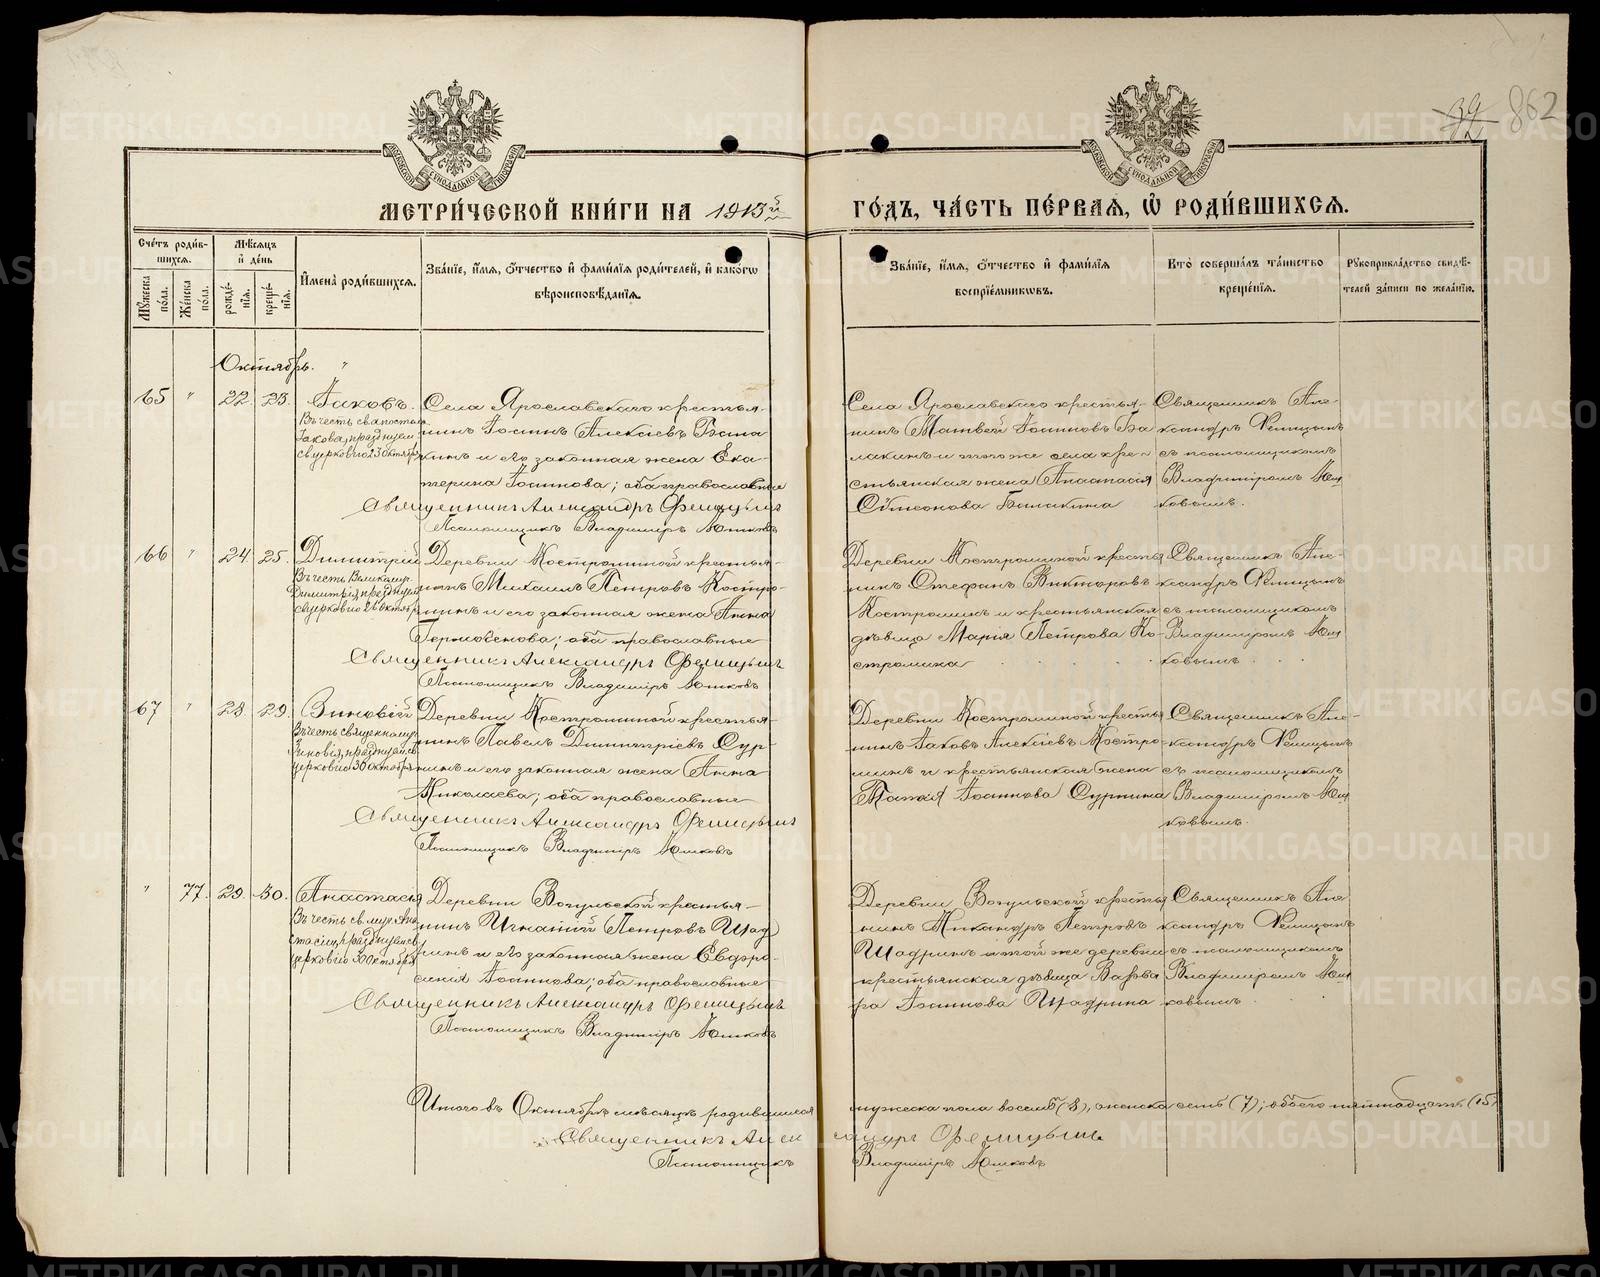 39/12 862
МЕТРИ́ЧЕСКОЙ КНИ́ГИ НА 1913й ГО́ДЪ, ЧА́СТЬ ПЕ́РВАЯ, Ѡ РОДИ́ВШИХСЯ.
Сче́тъ роди́в-
шихся.
Мꙋжеска по́ла.
Же́нска по́ла.
Мѣ́сяцъ и де́нь
рожде́-
нїя.
креще́-
нїя.
Имена̀ роди́вшихся.
Зва́нїе, и́мя, о́тчество и фами́лїя роди́телей, и како́гѡ
вѣроисповѣ́данїя.
Зва́нїе, и́мя, о́тчество и фами́лїя
воспрїе́мникѡвъ.
Кто̀ соверша́лъ та́инство
креще́нїя.
Рꙋкоприкла́дство свидѣ́-
телей за́писи по жела́нїю.
Октябрь. "
65 " 22. 23. Іаковъ.
Въ честь св. апостола
Іакова, празднуем.
св. церковію 23 октября
Села Ярославскаго крестья-
нинъ Іоаннъ Алексіевъ Бала
кинъ и его законная жена Ека-
терина Іоаннова; оба православные
Священникъ Александръ Флицынъ
Псаломщикъ Владиміръ Юшковъ
Села Ярославскаго крестья-
нинъ Матвей Іоанновъ Ба
лакинъ и того же села кре-
стьянская жена Анастасія
Сѵмеонова Балакина
Священникъ Але-
ксандръ Флицынъ
съ псаломщикомъ
Владиміромъ Юш
ковымъ.
66 " 24. 25. Димитрій
Въ честь Великомуч.
Димитрія, празднуем.
св. церковію 26 октября
Деревни Костроминой крестья-
нинъ Михаилъ Петровъ Костро-
минъ и его законная жена Анна
Гермогенова; оба православные
Священникъ Александръ Флицынъ
Псаломщикъ Владиміръ Юшковъ
Деревни Костроминой кресть
нинъ Стефанъ Викторовъ
Костроминъ и крестьянская
дѣвица Марія Петрова Ко-
стромина
Священникъ Але-
ксандръ Флицынъ
съ псаломщикомъ
Владиміромъ Юш
ковымъ.
67 " 28. 29. Зиновій
Въ честь священномуч.
Зиновія, празднуем. св.
церковію 30 октября
Деревни Костроминой крестья-
нинъ Павелъ Димитріевъ Сур-
нинъ и его законная жена Анна
Николаева; оба православные
Священникъ Александръ Флицынъ
Псаломщикъ Владиміръ Юшковъ
Деревни Костроминой кресть
нинъ Іаковъ Алексіевъ Костро-
минъ и крестьянская жена
Іоаннова Сурнина
Священникъ Але-
ксандръ Флицынъ
съ псаломщикомъ
Владиміромъ Юш
ковымъ.
" 77. 29. 30. Анастасія
Въ честь св. муч. Ана
стасіи, празднуем. св.
церковію 30 октября
Деревни Вогульской крестья-
нинъ Игнатій Петровъ Шад
ринъ и его законная жена Евдро-
синія Іоаннова; оба православные
Священникъ Александръ Флицынъ
Псаломщикъ Владиміръ Юшковъ
Деревни Вогульской кресть
нинъ Никандръ Петровъ
Шадринъ и той же деревни
крестьянская дѣвица Варва
ра Іоаннова Шадрина
Священникъ Але
ксандръ Флицынъ
съ псаломщикомъ
Владиміромъ Юш
ковымъ.
Итого въ Октябрѣ мѣсяцѣ родившихся мужеска пола восемь (8), женска семь (7); обоего пятнадцать (15)
Священникъ Александръ Флицынъ
Псаломщикъ Владиміръ Юшковъ